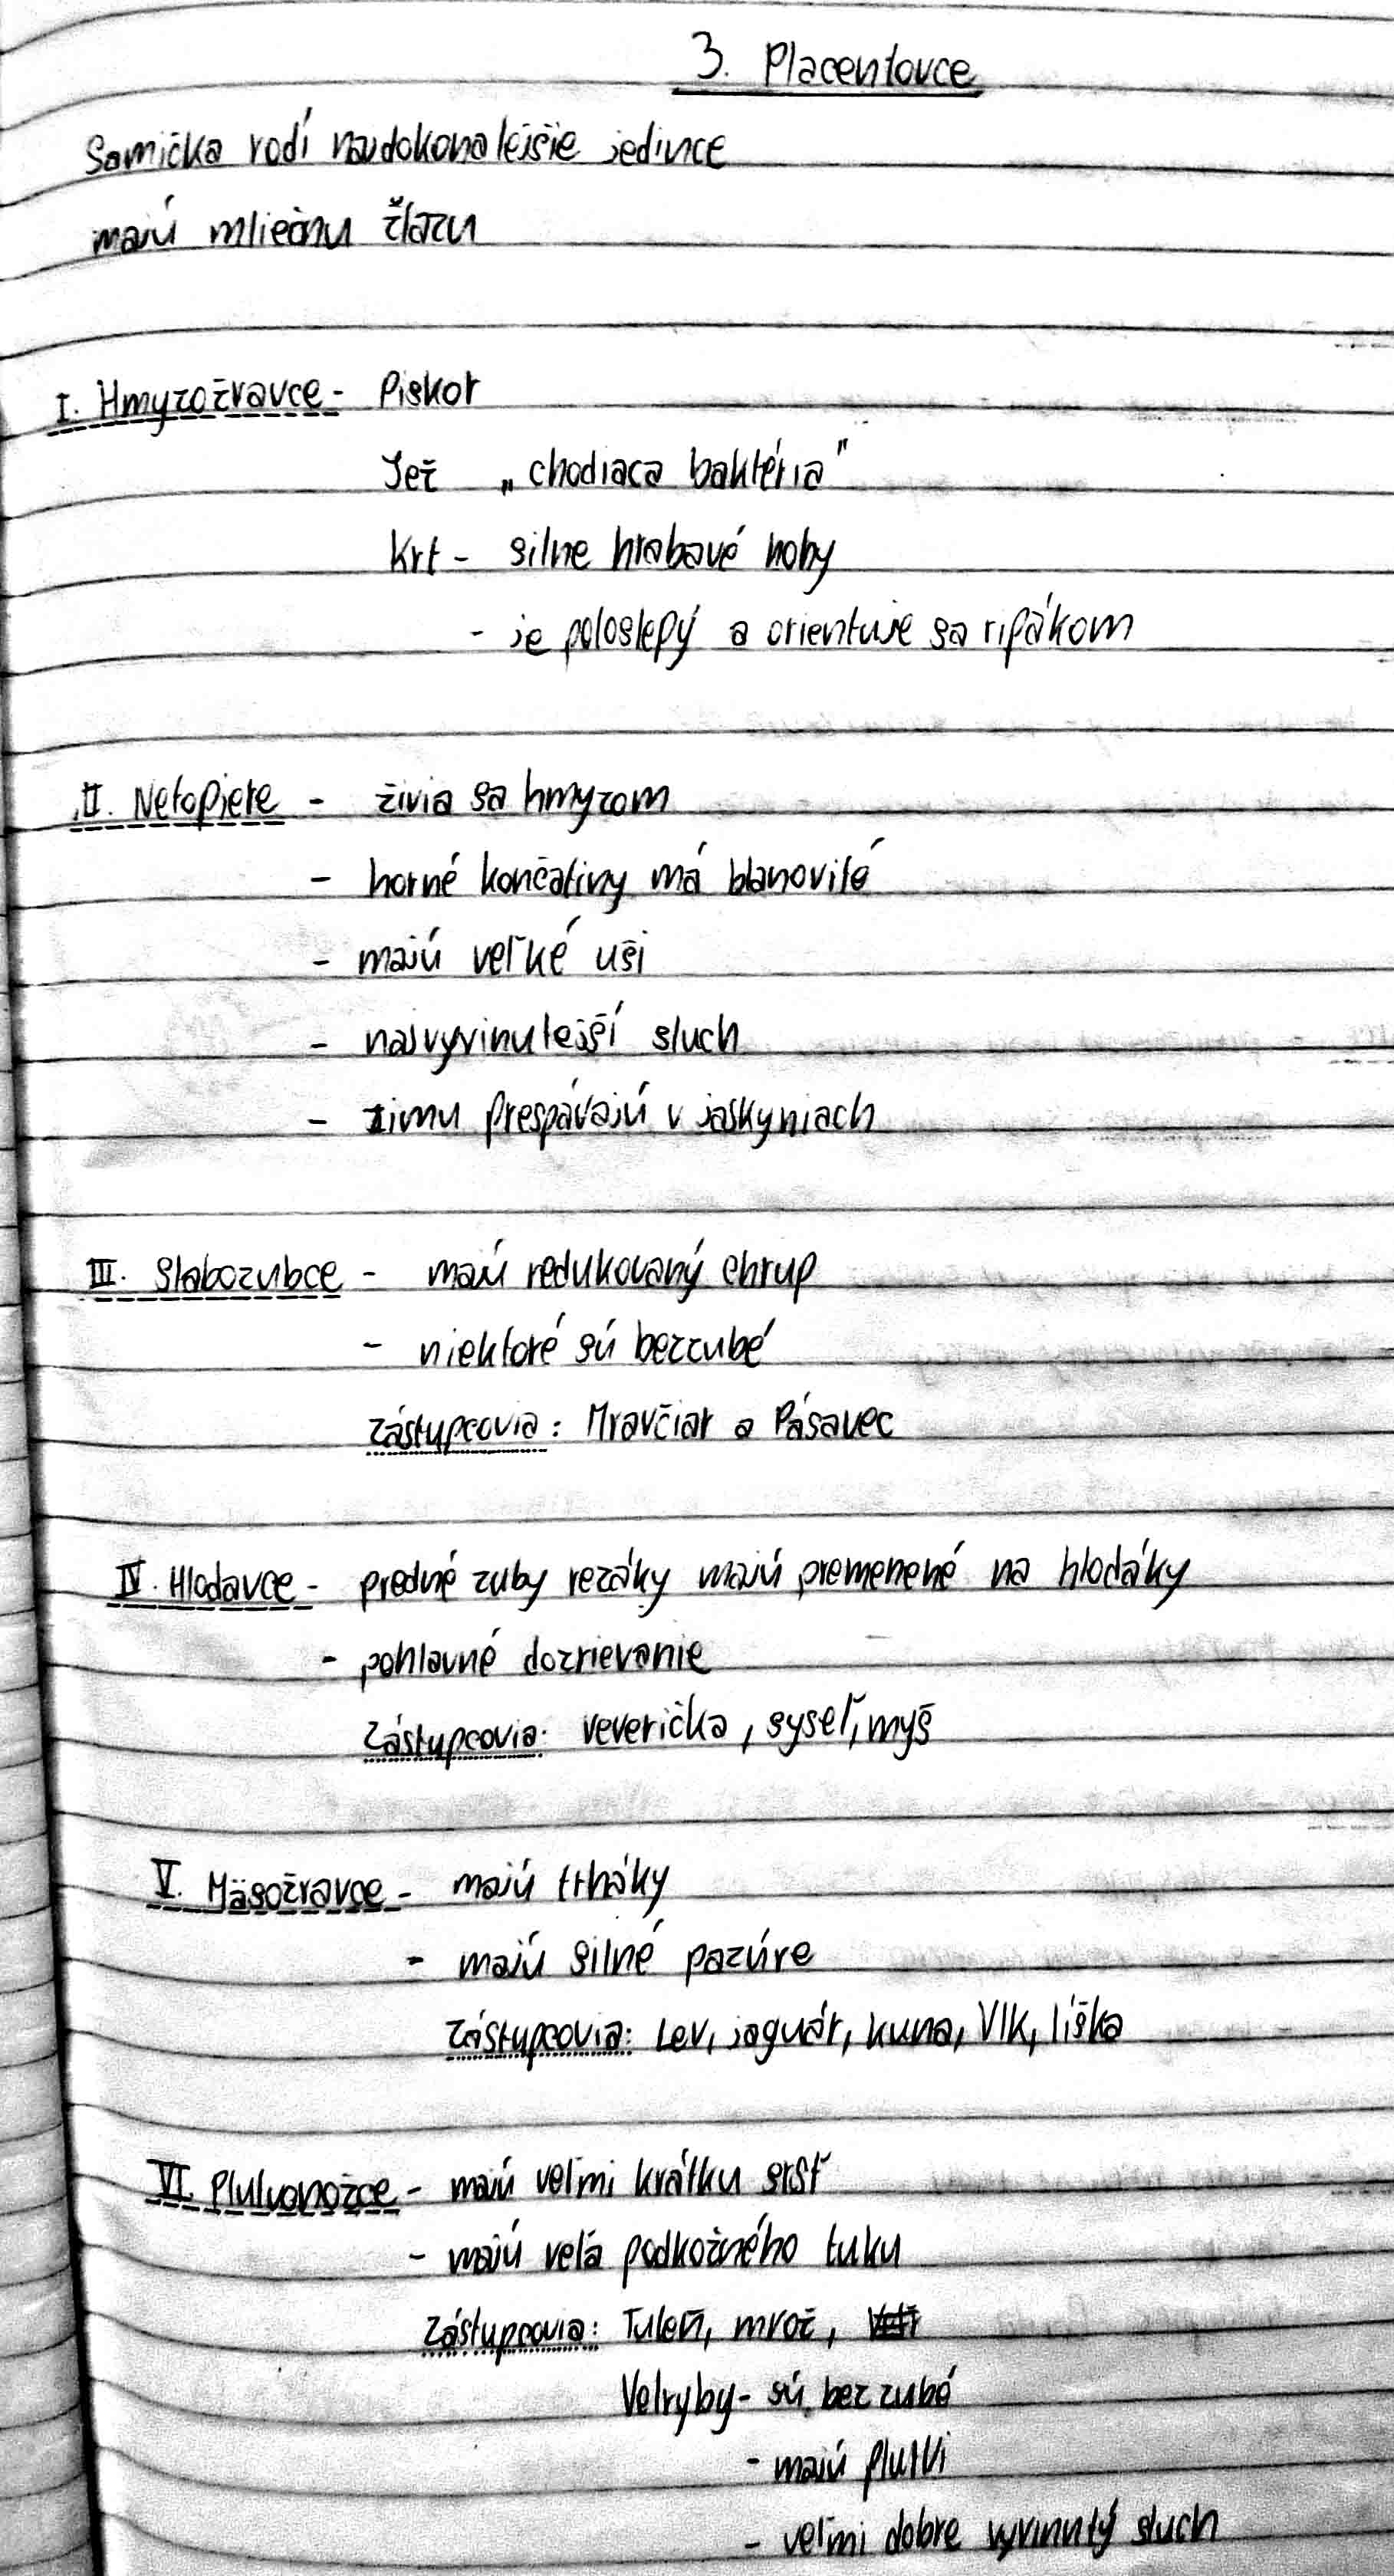 3. Placentovce
Samička rodí najdokonalejšie jedince
majú mliečnu žlazu
I. Hmyzožravce - Piskor
Jež „chodiaca baktéria"
Krt - silne hrabavé nohy
- je poloslepý a orientuje sa rifákom
II. Netopiere - živia sa hmyzom
- horné končatiny má blanovité
- majú veľké uši
- najvyvinutejší sluch
- zimu prespávajú v jaskyniach
III. Slabozubce - majú redukovaný chrup
- niektoré sú bezzubé
zástupcovia: Mravčiar a Pásavec
IV. Hlodavce - predné zuby rezáky majú premenené na hlodáky
- pohlavné dozrievanie
Zástupcovia: veverička, syseľ, myš
V. Mäsožravce - majú trháky
- majú silné pazúre
Zástupcovia: Lev, jaguár, kuna, Vlk, líška
VI. Plutvonožce - majú veľmi krátku srsť
- majú veľa podkožného tuku
Zástupcovia: Tuleň, mrož,
Velryby - sú bezzubé
- majú plutvi
- veľmi dobre vyvinutý sluch